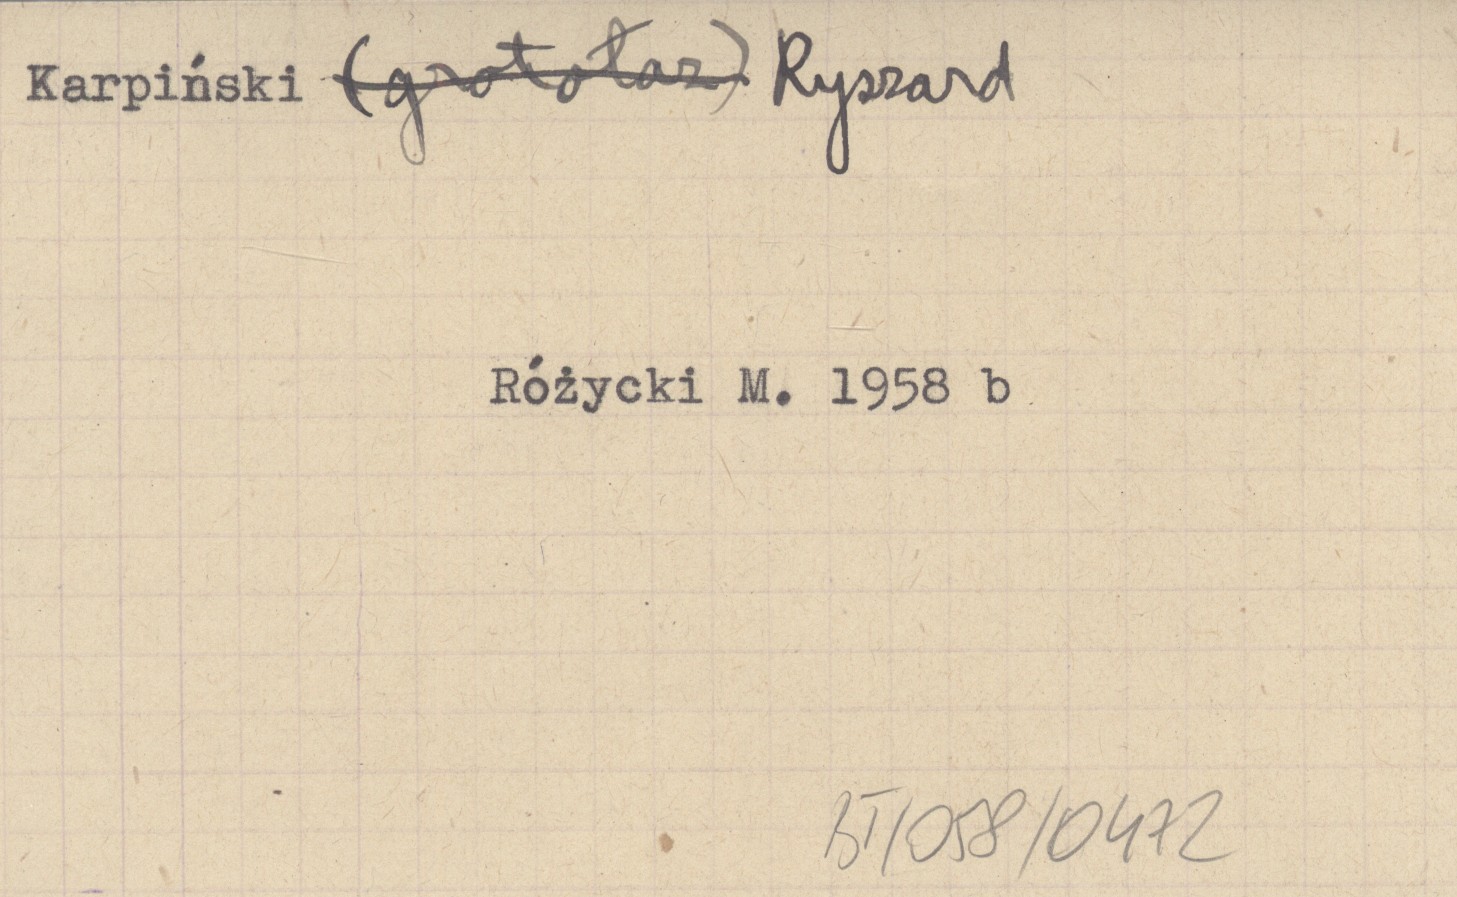 Karpiński (grotołaz) Ryszard
Różycki M. 1958 b
BT/058/0472